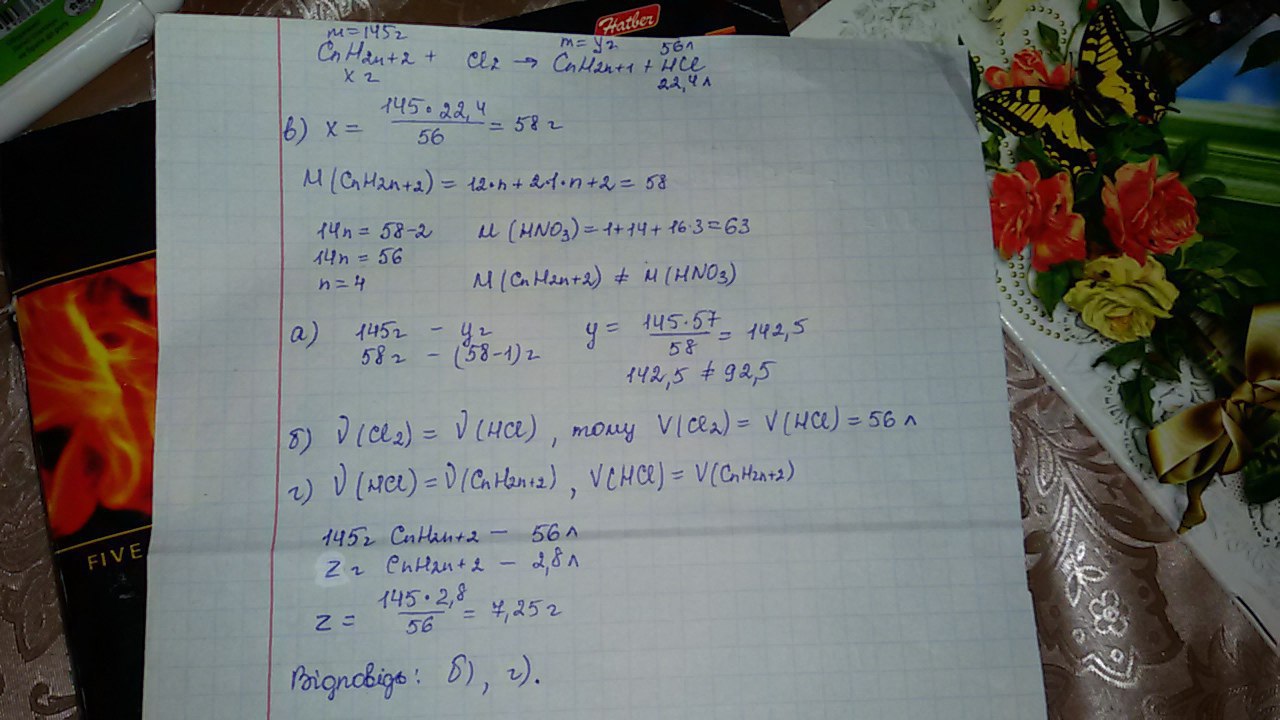 Hatber
m=145г m=yг 56л
CnH2n+2 + Cl2 → CnH2n+1 + HCl
x г 22,4л
в) x = 145·22,4 / 56 = 58 г
M(CnH2n+2) = 12·n+2·1·n+2 = 58
14n = 58-2 M(HNO3) = 1+14+16·3=63
14n = 56
n=4 M(CnH2n+2) ≠ M(HNO3)
а) 145г - yг y = 145·57 / 58 = 142,5
58г - (58-1)г
142,5 ≠ 92,5
б) ν(Cl2) = ν(HCl), тому V(Cl2) = V(HCl) = 56 л
г) ν(HCl) = ν(CnH2n+2), V(HCl) = V(CnH2n+2)
145г CnH2n+2 - 56л
z г CnH2n+2 - 2,8л
z = 145·2,8 / 56 = 7,25г
Відповідь: б), г).
FIVE